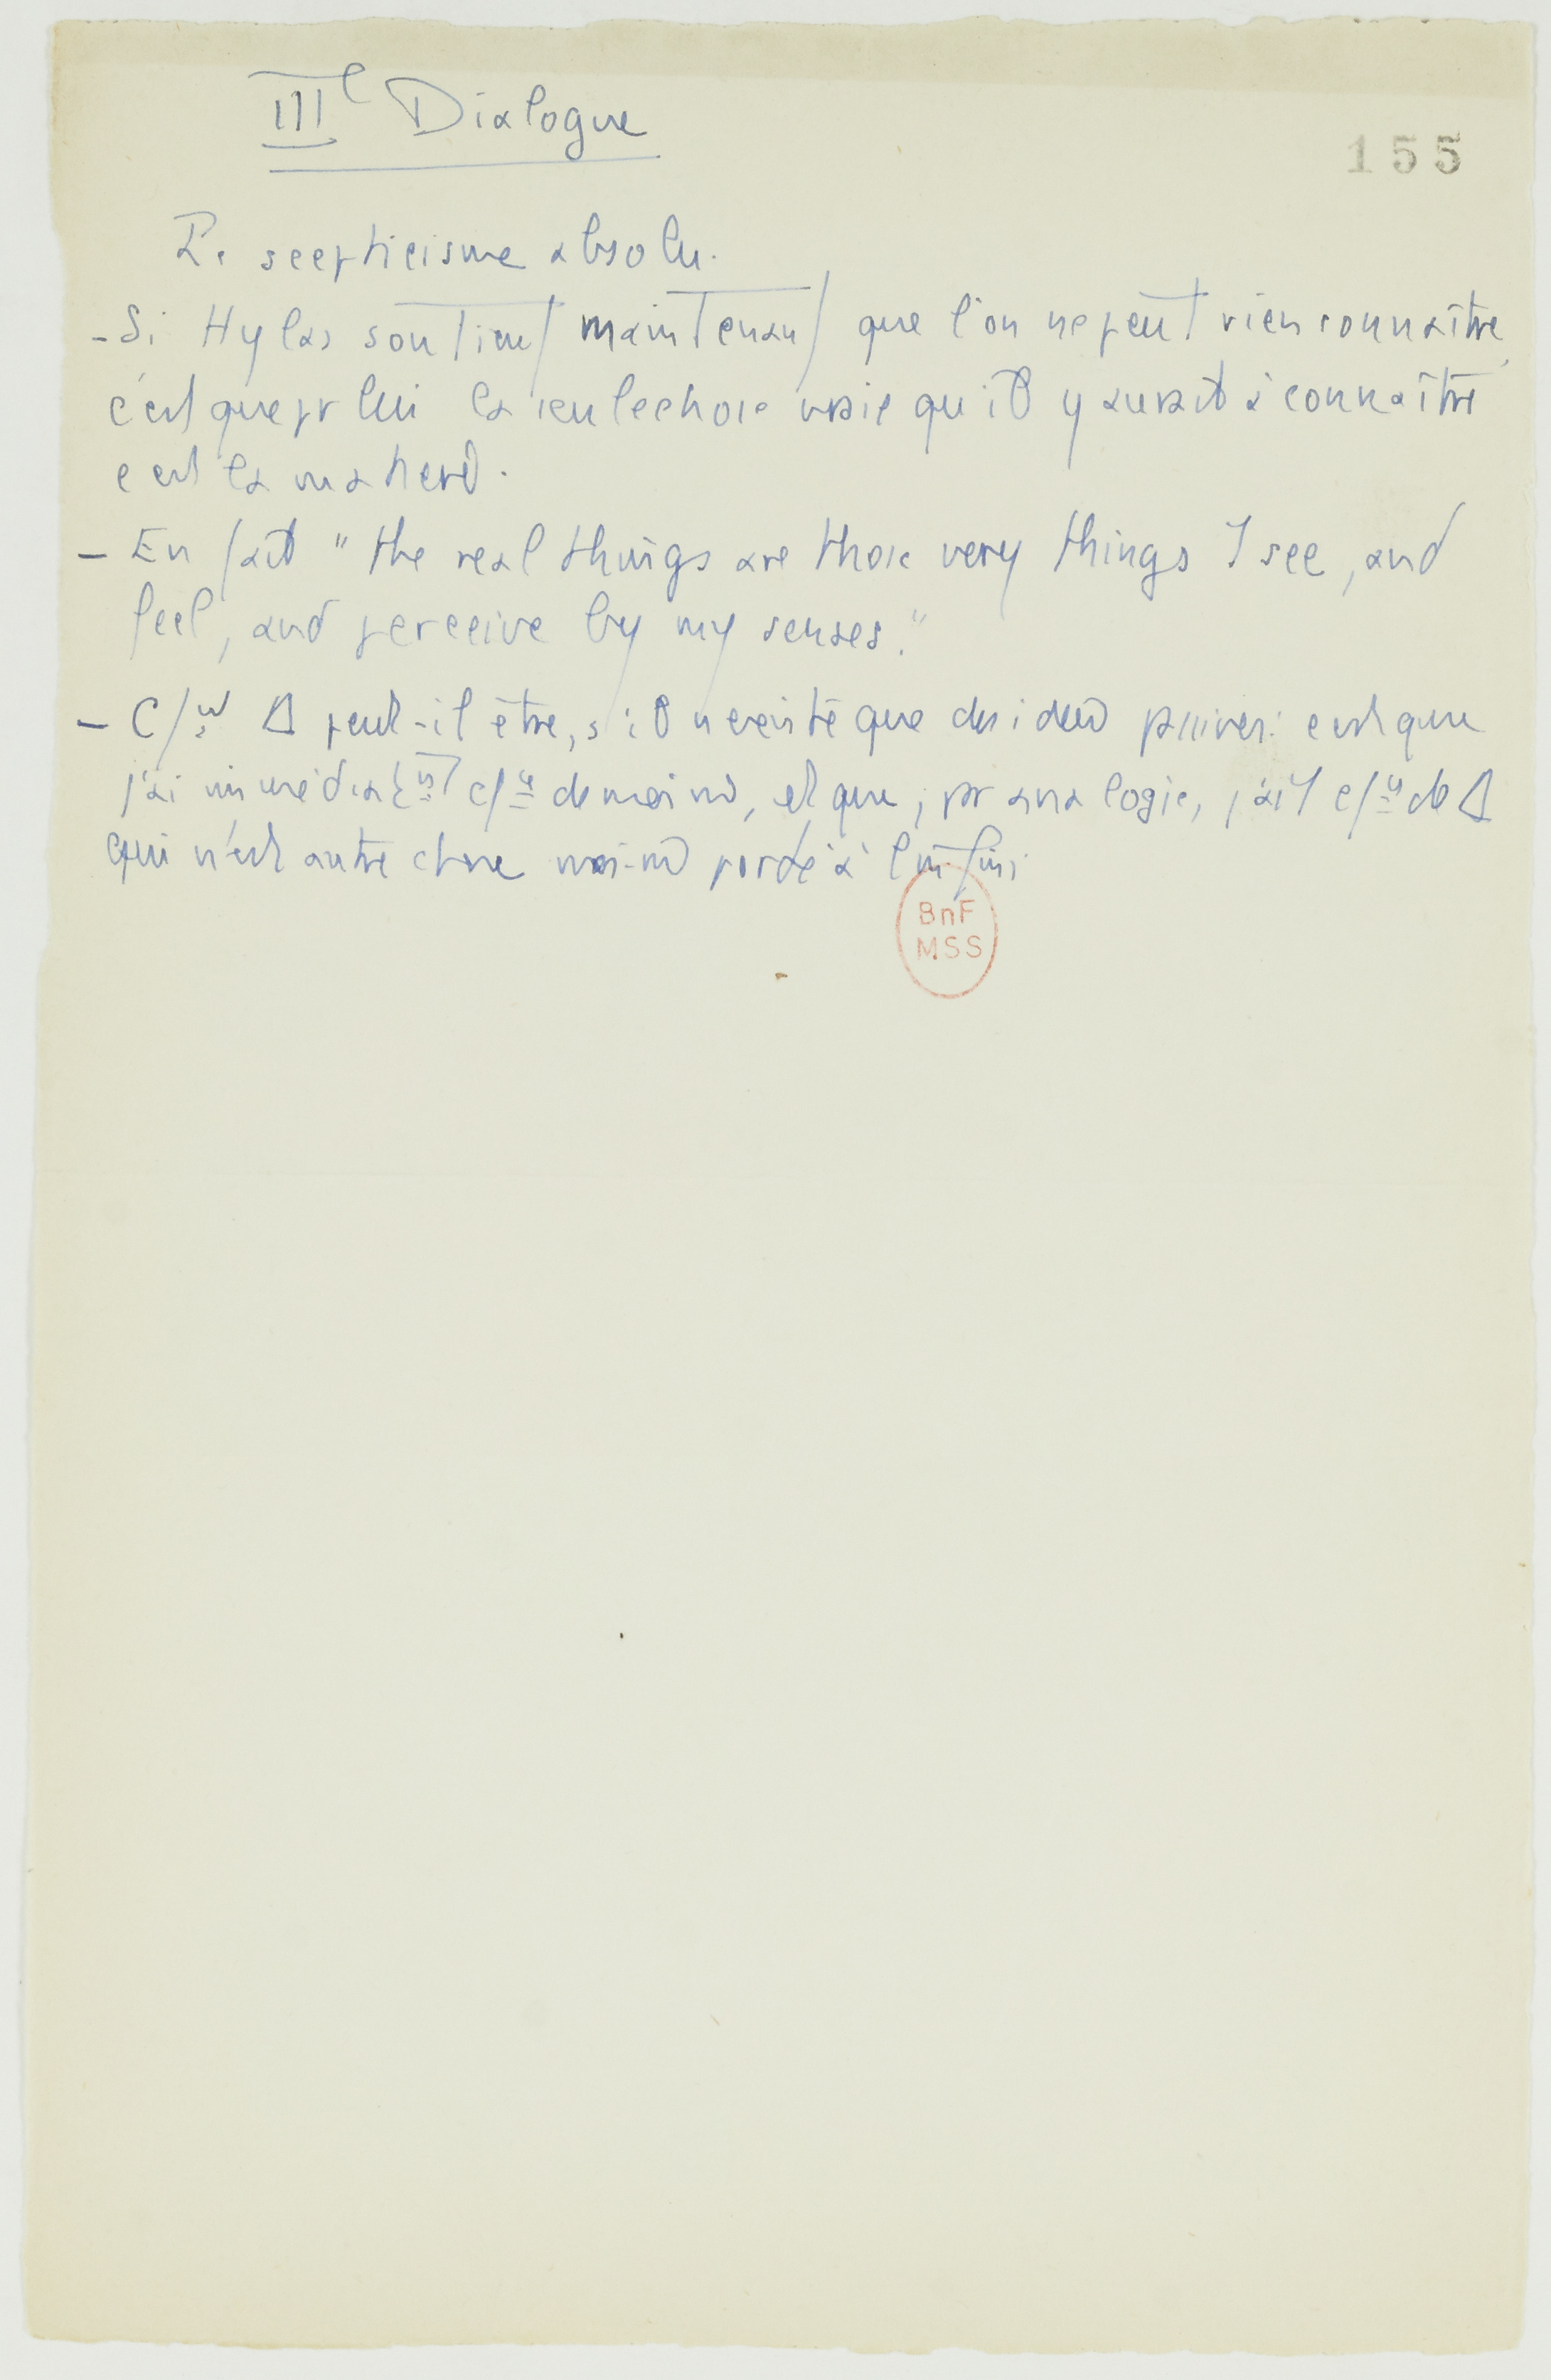 IIIe Dialogue
155
Le scepticisme absolu.
- Si Hylas soutient maintenant que l'on ne peut rien connaître,
c'est que pr lui la seule chose vraie qu'il y aurait à connaître
c'est la matière.
- En fait "the real things are those very things I see, and
feel, and perceive by my senses."
- Δ peut-il être, s'il n'existe que des idées passives: c'est que
j'ai de moi-m̂, et que, pr analogie, j'ai de Δ
qui n'est autre chose moi-m̂ porté à l'infini
BnF
MSS